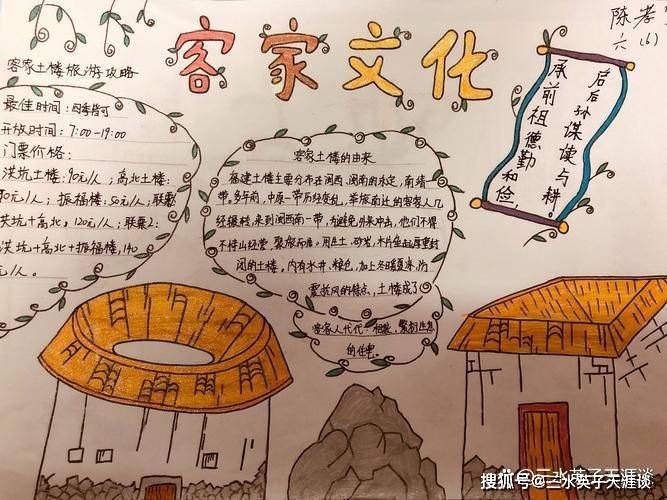 客家文化
陈孝
六(6)
客家土楼旅游攻略
最佳时间：四季皆可
开放时间：7:00-19:00
门票价格：
洪坑土楼：90元/人；高北土楼：
90元/人；振福楼：50元/人；联票
洪坑+高北，120元/人；联票2：
洪坑+高北+振福楼，140
元/人。
客家土楼的由来
福建土楼主要分布在闽西、闽南的永定，南靖一
带。多年前，中原一带历经战乱，举族南迁的客家人几
经辗转，来到闽西南一带，为避免外来冲击，他们不得
不恃山经营，聚族而居。用生土、砂石、木片
闭的土楼。内有水井、粮仓，加上冬暖夏凉、防
震抗风的特点，土楼成了
客家人代代相袭，繁衍生息
的住宅。
承前祖德勤和俭
启后孙谋读与耕。
搜狐号@三水英子天涯谈
@三水英子天涯谈